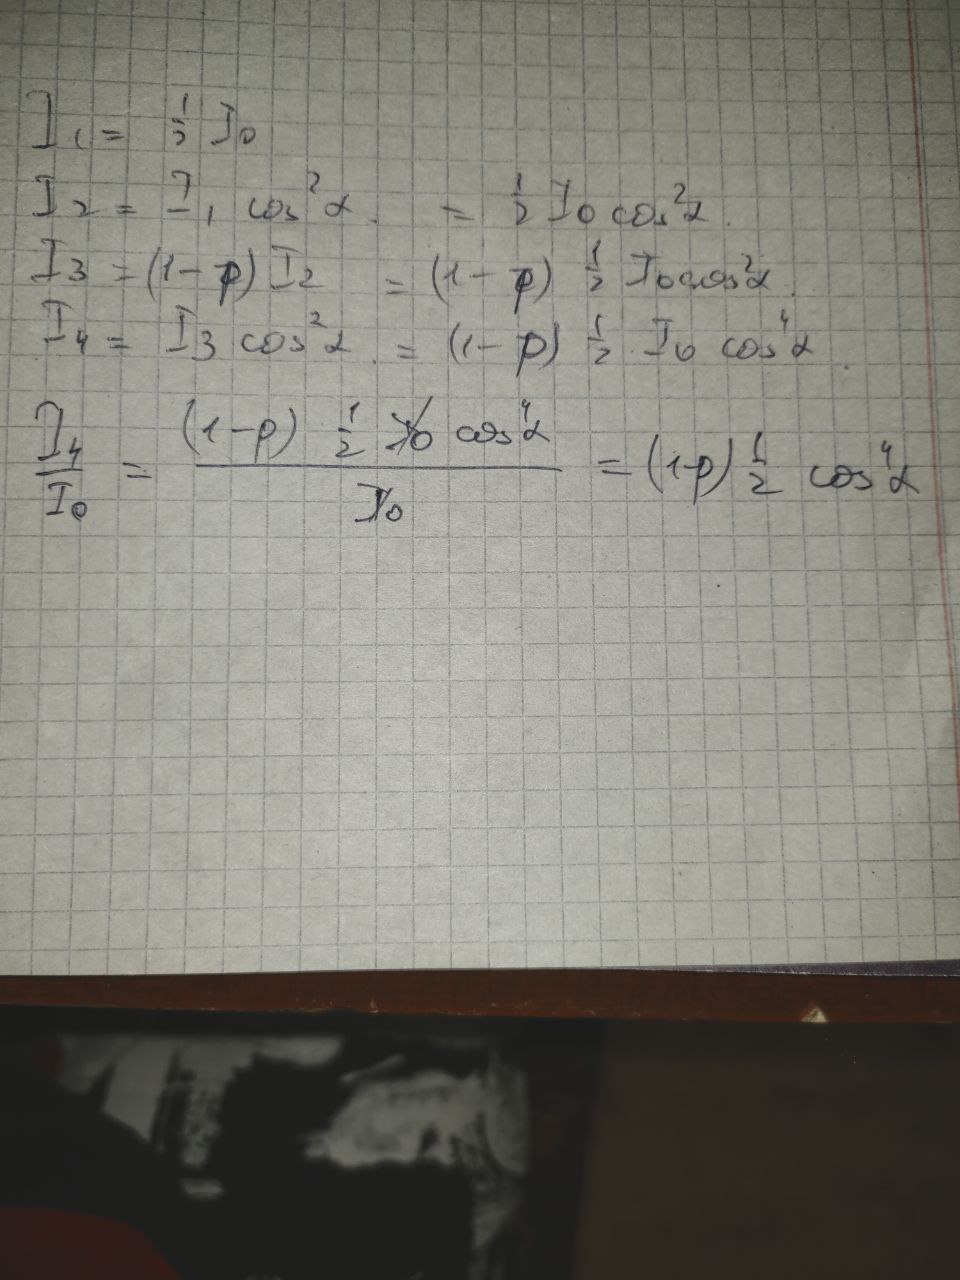 I₁ = ½ I₀
I₂ = I₁ cos²α. = ½ I₀ cos²α.
I₃ = (1-p) I₂ = (1-p) ½ I₀ cos²α.
I₄ = I₃ cos²α. = (1-p) ½ I₀ cos⁴α.
I₄/I₀ = (1-p) ½ I₀ cos⁴α / I₀ = (1-p) ½ cos⁴α